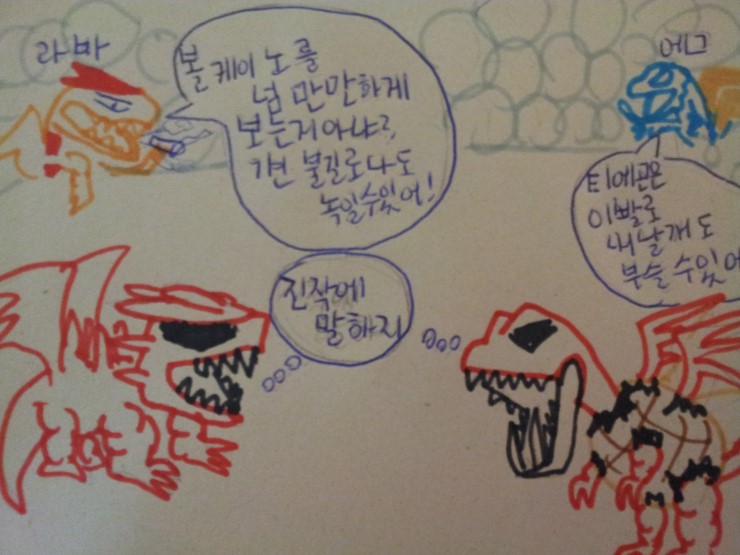 라바
볼케이노를
넘 만만하게
보는거아냐?
기변 불길로나도
녹일수있어!
에그
티에곤은
이빨로
내날개도
부술수있어
진작에
말하지